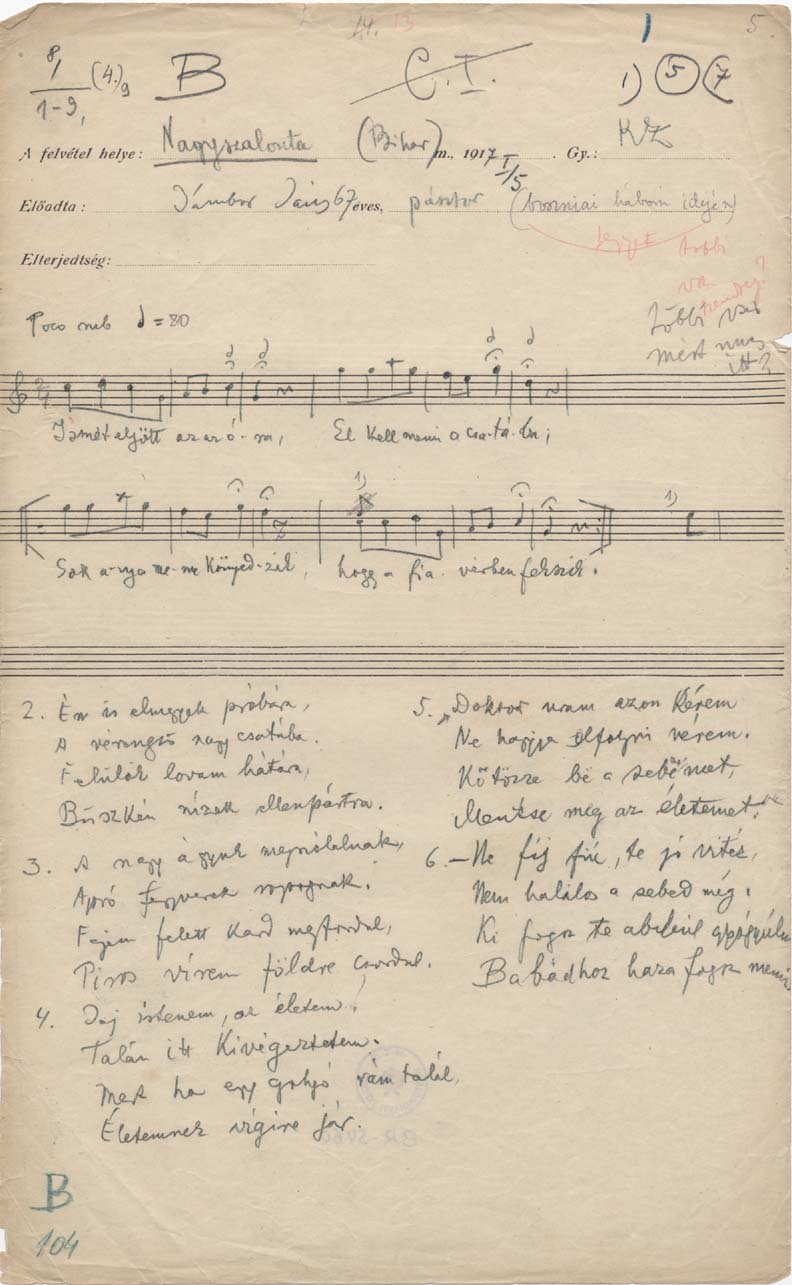 14. 13
5.
8/
1-9,
(4.)9
B
C.I.
1) 5 (7
A felvétel helye: Nagyszalonta (Bihar) m., 1917 I/5. Gy.: KZ
Előadta: Jámbor János 67 éves, pásztor (boszniai háború idején)
többi
Elterjedtség:
többi vsz
mért nincs
itt?
Poco rub ♩ = 80
Ismét eljött az az ó-ra, El kell menni a csa-tá-ba;
1) 1)
Sok a-nya ne-ne könyed-zik, hogy a fia vérben fekszik.
2. Én is elmegyek próbára,
A vérengző nagy csatába.
Felülök lovam hátára,
Büszkén nézek ellenpártra.
3. A nagy ágyuk megszólalnak,
Apró fegyverek ropognak.
Fejem felett kard megfordul,
Piros vérem földre csordul.
4. Jaj istenem, az életem!
Talán itt kivégeztetem.
Mert ha egy golyó rám talál,
Életemnek végire jár.
5. Doktor uram azon kérem
Ne hagyja elfolyni vérem.
Kötözze bé a sebemet,
Mentse meg az életemet.
6. – Ne félj fiú, te jó vitéz,
Nem halálos a sebed még.
Ki fogsz te abbúl gyógyúlni
Babádhoz haza fogsz menni.
B
104